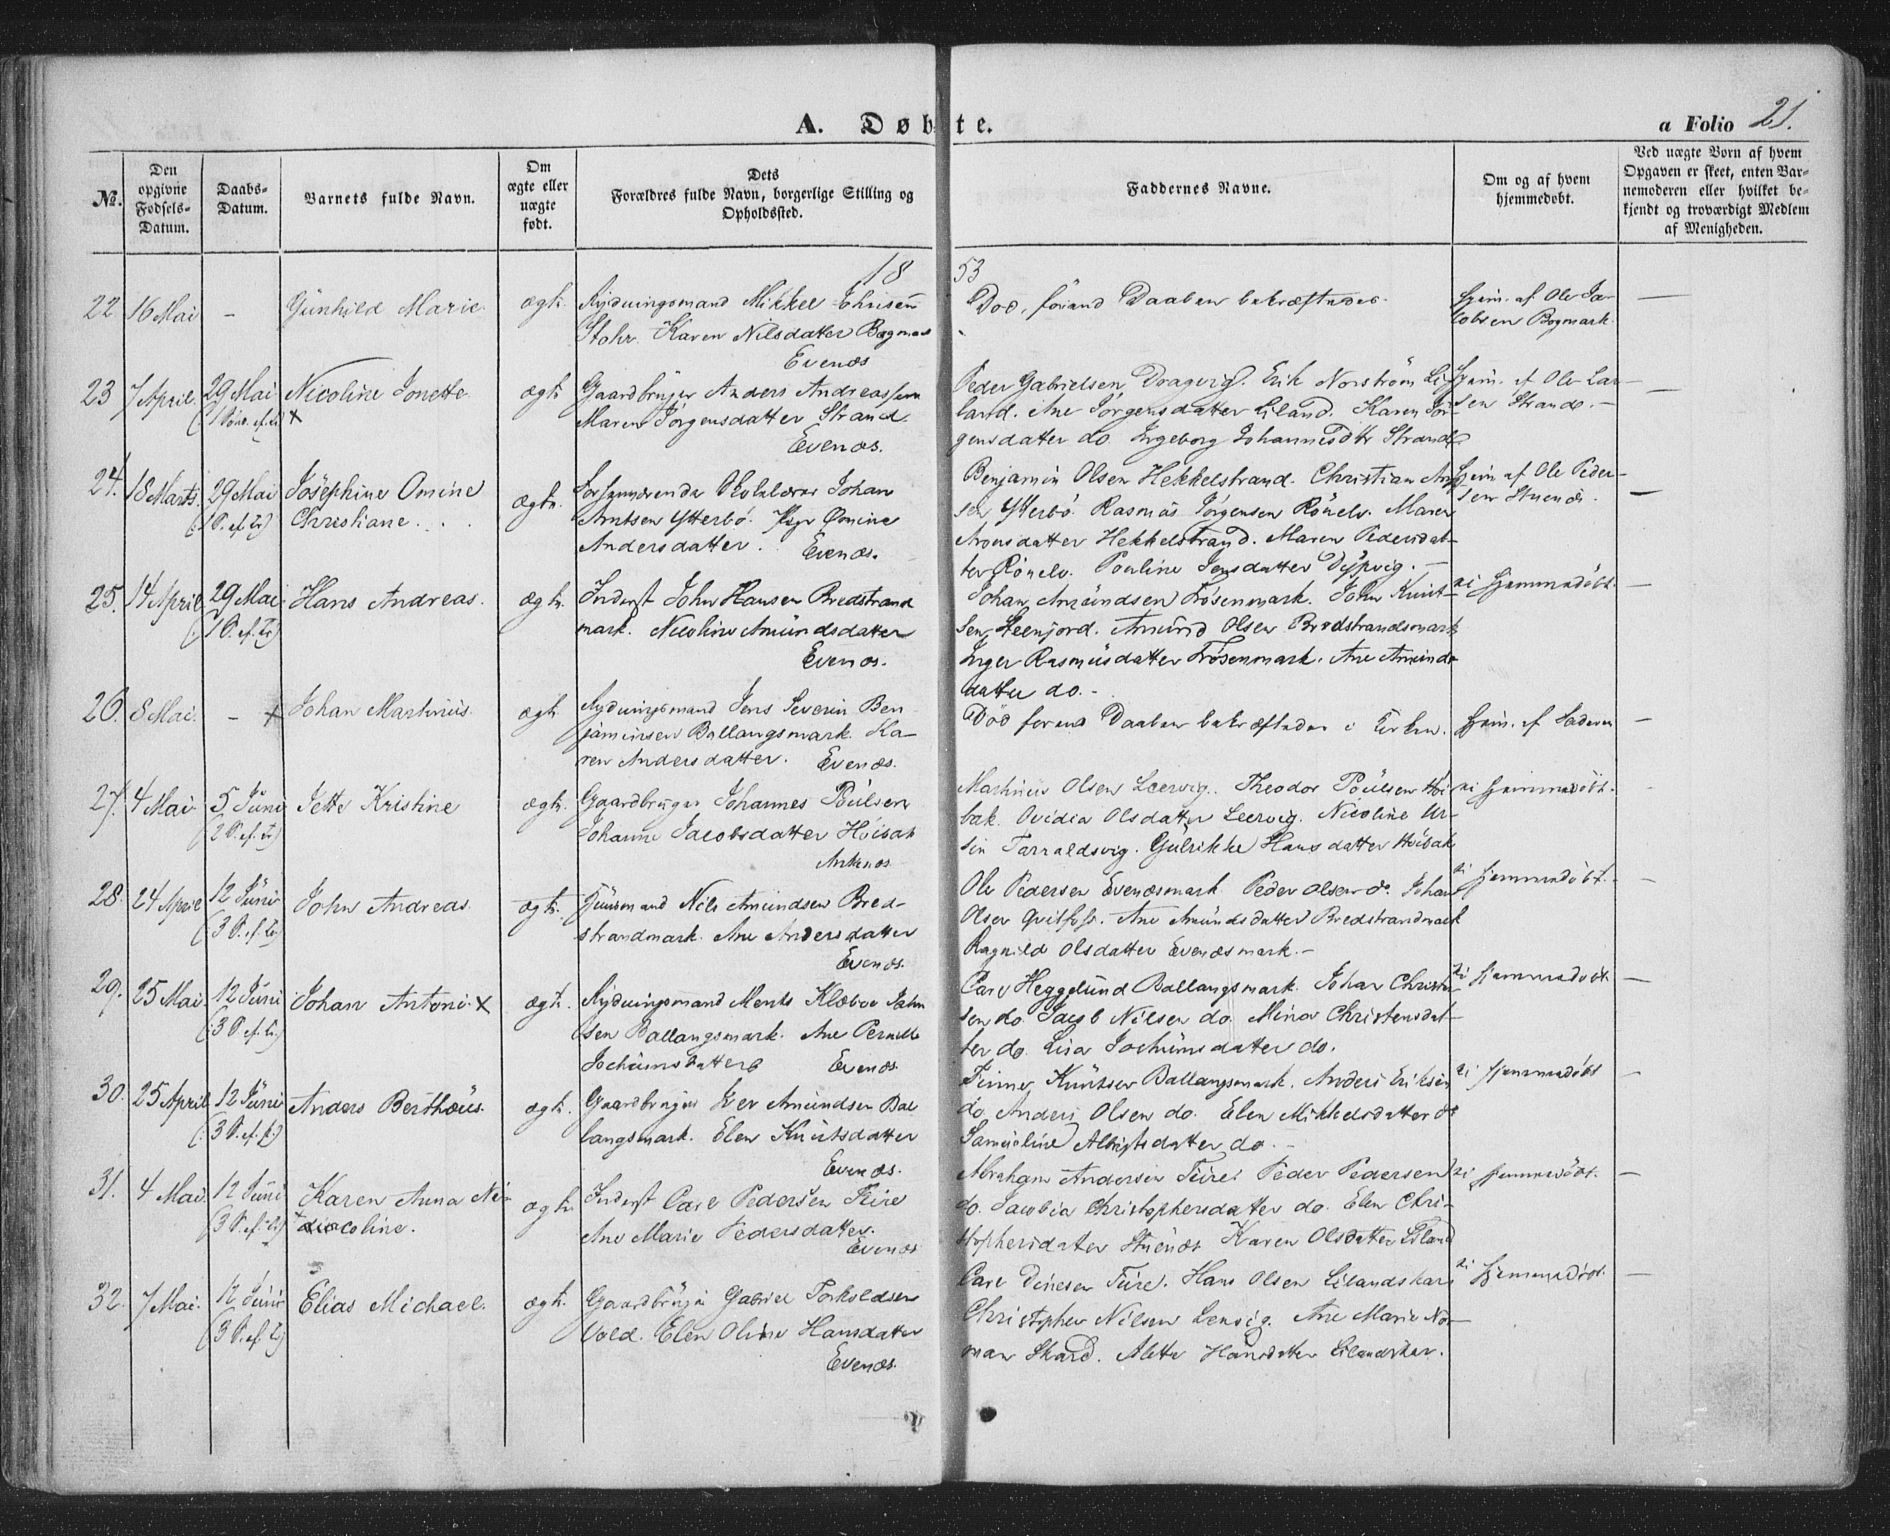 A. Døbte.
a Folio 21.
№.
Den opgivne Fødsels-Datum.
Daabs-Datum.
Barnets fulde Navn.
Om ægte eller uægte født.
Dets Forældres fulde Navn, borgerlige Stilling og Opholdssted.
Faddernes Navne.
Om og af hvem hjemmedøbt.
Ved uægte Børn af hvem Opgaven er skeet, enten Barnemoderen eller hvilket bekjendt og troværdigt Medlem af Menigheden.
18 53
22. 16 Mai - Gunhild Marie. ægte.
Rydningsmand Mikkel
Karen Nilsdatter
Evenæs
Død, førend Daaben bekræftedes.
Hjem. af Ole Jacobsen Bogmark. —
23 7 April. 29 Mai Nicoline Jonette ægte
Gaardbruger Anders Andreassen
Maren Jørgensdatter Strand.
Evenæs.
Peder Gabrielsen Dragvig. Erik Norstrøm Liland.
Ane Jørgensdatter Liland. Karen Jørgensdatter do. Ingeborg Johannesdtr Strand
Hjem. af Ole Larsen Strand. —
24. 18 Marts. 29 Mai Josephine Omine
Christiane. ægte.
Skolelærer Johan
Arntsen Ytterbø. Omine
Andersdatter. Evenæs.
Benjamin Olsen Hekkelstrand. Christian
Ytterbø. Rasmus Jørgensen Rönelv. Maren
Aronsdatter Hekkelstrand. Maren Pedersdatter Rönelv. Pauline Jensdatter Dypvig. —
Hjem af Ole Pedersen Stuenæs. —
25. 14 April 29 Mai Hans Andreas. ægte.
Inderst John Hansen Bredstrandmark. Nicoline Amundsdatter
Evenæs.
Johan Amundsen Trøsenmark. John Knutsen Steenjord. Amund Olsen Bredstrandsmark
Inger Rasmusdatter Trøsenmark. Ane Amundsdatter do. -
ei Hjemmedøbt. —
26. 8 Mai. - x Johan Martinus. ægte
Rydningsmand Jens Severin Benjaminsen Ballangsmark. Karen Andersdatter. Evenæs.
Død førend Daaben bekræftedes i Kirken.
Hjem. af Faderen —
27. 4 Mai 5 Juni Jette Kristine ægte.
Gaardbruger Johannes Poulsen
Johanne Jacobsdatter Höibak
Ankenes
Martinus Olsen Leervig. Theodor Poulsen Höibak. Ovidia Olsdatter Leervig. Nicoline
Tarraldsvig. Gulrikke Hansdatter Höibak
ei Hjemmedøbt.
28. 24 April 12 Juni John Andreas. ægte.
Huusmand Nils Amundsen Bredstrandmark. Ane Andersdatter
Evenæs.
Ole Pedersen Evenæsmark. Peder Olsen do. Johan
Olsen Ane Amundsdatter Bredstrandmark
Ragnild Olsdatter Evenæsmark. —
ei Hjemmedøbt. —
29. 25 Mai 12 Juni Johan Antoni. x ægte.
Rydningsmand Ments Klæboe
Ballangsmark. Ane Pernille
Jochumsdatter Evenæs
Carl Heggelund Ballangsmark. Johan Christensen do Jacob Nilsen do. Mina Christensdatter do. Lisa Jochumsdatter do.
ei Hjemmedøbt —
30. 25 April 12 Juni Anders Berthæus. ægte.
Gaardbruger Iver Amundsen Ballangsmark. Elen Knutsdatter
Evenæs.
Knutsen Ballangsmark. Anders Eriksen
do. Anders Olsen do. Elen Mikkelsdatter do
Samueline Albrigtsdatter do. —
ei Hjemmedøbt —
31. 4 Mai. 12 Juni Karen Anna Nicoline. ægte.
Inderst Carl Pedersen Fiire
Ane Marie Pedersdatter.
Evenæs
Abraham Andersen Fiire. Peder Pedersen
do. Jacobia Christophersdatter do. Elen Christophersdatter Stuenæs Karen Olsdatter Liland
ei Hjemmedøbt. —
32. 7 Mai. 12 Juni Elias Michael. ægte.
Gaardbruger Gabriel Torkildsen
Vold. Elen Oline Hansdatter
Evenæs.
Carl Dinesen Fiire. Hans Olsen Lilandskar
Christopher Nilsen Lenvig. Ane Marie
Skard. Alette Hansdatter Lilandskar.
ei Hjemmedøbt. —